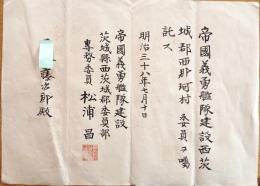 帝國義勇艦隊建設西茨
城郡西那珂村 委員ヲ囑
託ス
明治三十八年七月十日
帝國義勇艦隊建設
茨城縣西茨城郡委員部
專務委員 松浦昌
藤次郎殿